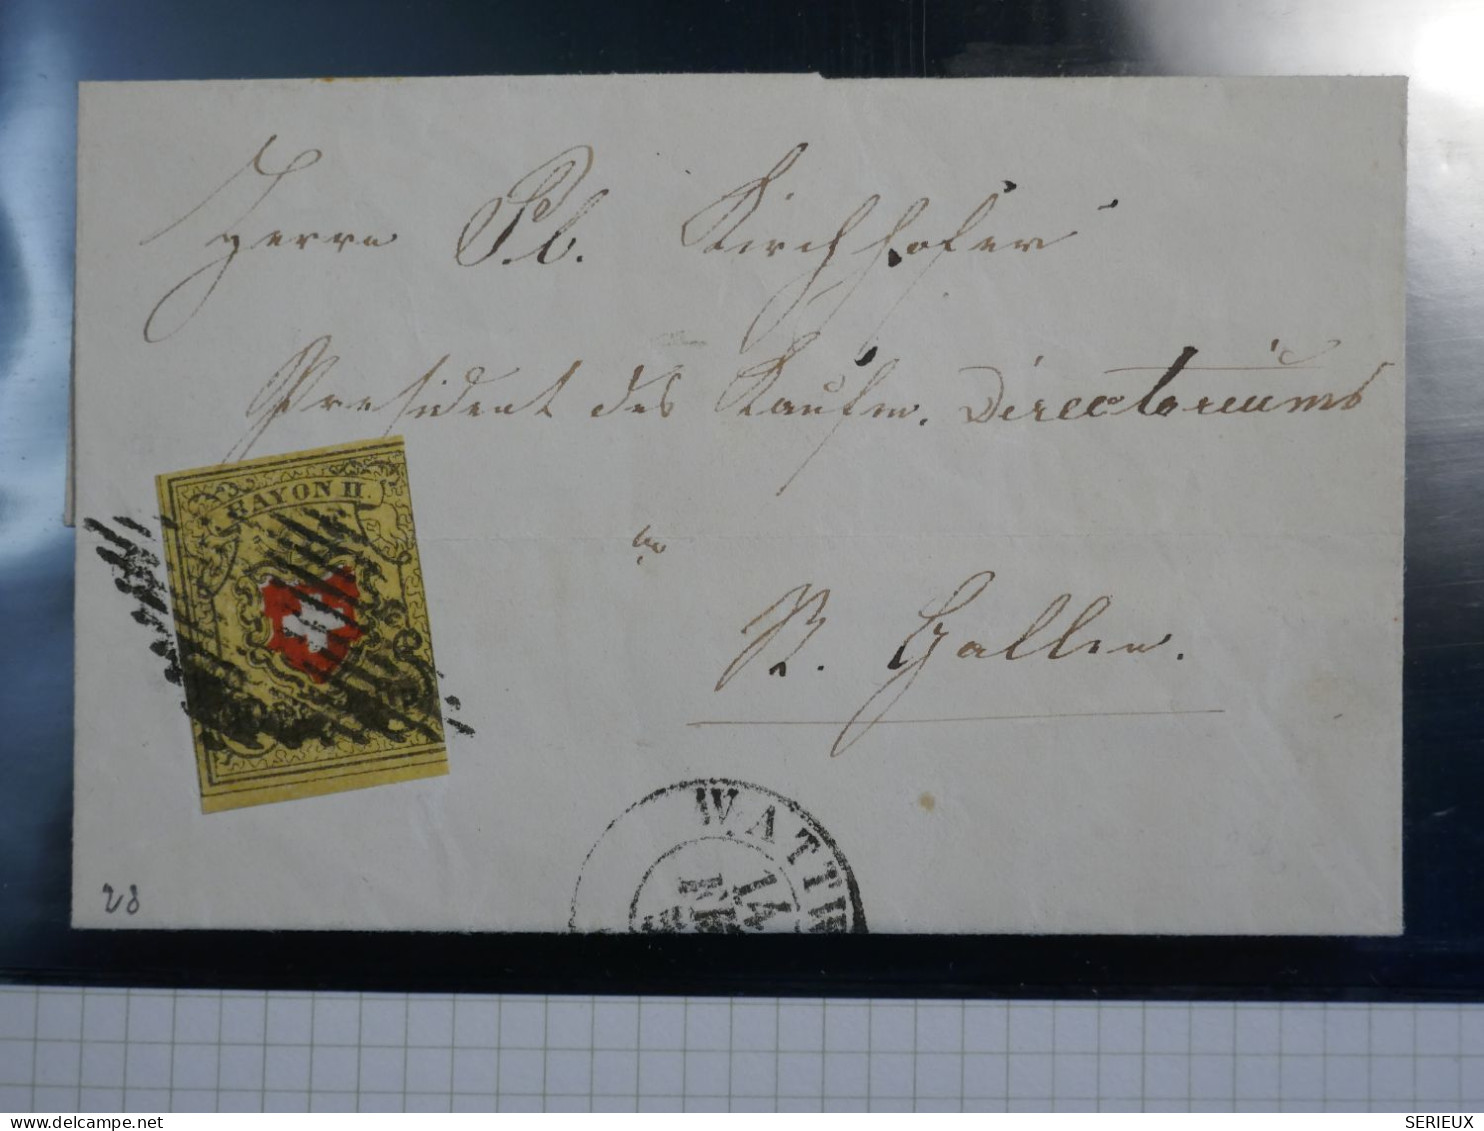 Herrn P.b. Kirchhofer
President des Kaufm. Directoriums
in
St. Gallen.
RAYON II
WATTW
14
23
SERIEUX